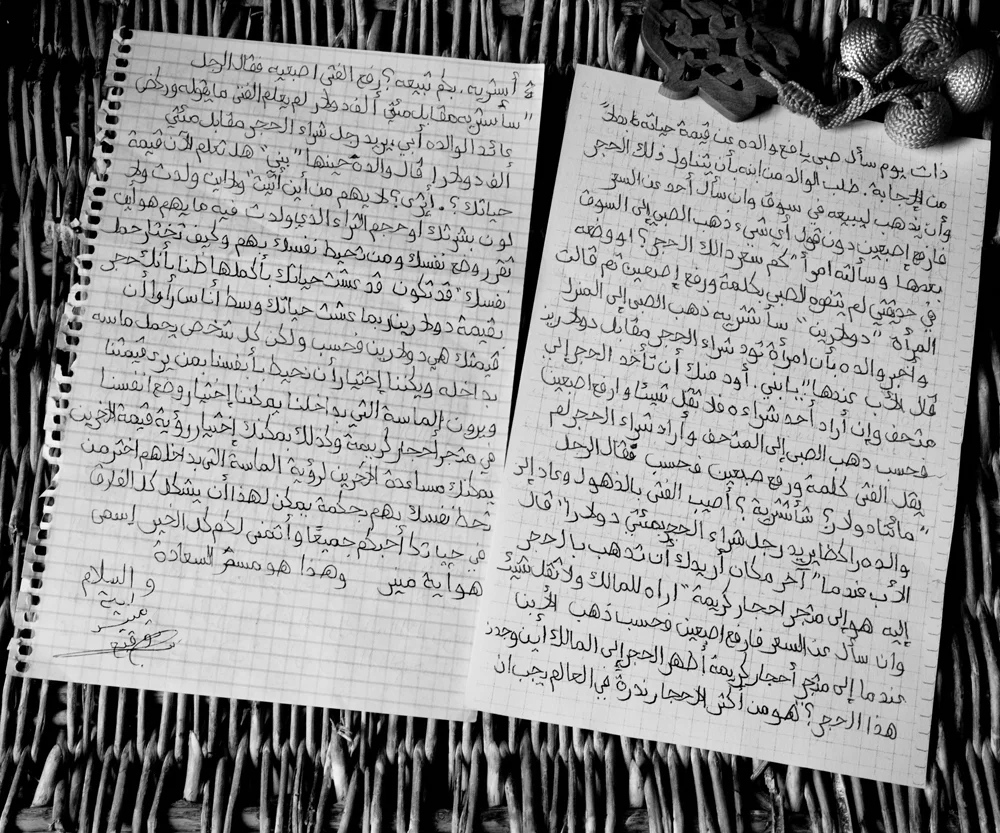 ذات يوم سأل صبي يافع والده عن قيمة حياته
من الإجابة. طلب الوالد من ابنه أن يتناول ذلك الحجر
وأن يذهب ليبيعه في سوق وان سأل أحد عن السعر
فارفع إصبعين دون قول أي شيء ذهب الصبي إلى السوق
بعدها وسألته امرأ "كم سعر ذالك الحجر؟ لو وضعه
في حديقتي لم يتفوه الصبي بكلمة ورفع إصبعين ثم قالت
المرأة "دولارين" سأشتريه ذهب الصبي إلى المنزل
وأخبر والده بأن امرأة تود شراء الحجر مقابل دولارين
قال الأب عندها "يا بني. أود منك أن تأخد الحجر إلى
متحف وإن أراد أحد شراءه فلا تقل شيئا وارفع اصبعين
فحسب ذهب الصبي إلى المتحف وأراد شراء الحجر لم
يقل الفتى كلمة ورفع صبعين فحسب فقال الرجل
"مائتا دولار؟ سأشتريه؟ أصيب الفتى بالذهول وعاد إلى
والده راكظا يريد رجل شراء الحجر بمئتي دولارا" قال
الأب عندما" آخر مكان أريدك أن تذهب بالحجر
إليه هو إلى متجر احجار كريمة "اراه للمالك ولا تقل شيئ
وان سأل عن السعر فارفع اصبعين فحسب ذهب الأبن
عندما إلى متجر أحجار كريمة أظهر الحجر إلى المالك أين وجدت
هذا الحجر؟ "هو من أكثر الحجار ندرة في العالم يجب ان
أشتريه. بكم تبيعه؟ رفع الفتى اصبعيه فقال الرجل
"سأشتريه مقابل مئتي ألف دولار لم يعلم الفتى ما يقوله وركض
عائدا لوالده أبي يريد رجل شراء الحجر مقابل مئتي
ألف دولارا قال والده حينها "بني" هل تعلم الآن قيمة
حياتك؟. أترى؟ لا يهم من أين أتيت" ولا أين ولدت ولا
لون بشرتك أو حجم الثراء الذي ولدت فيه ما يهم هو أين
تقرر وضع نفسك ومن تحيط نفسك بهم وكيف تختار حمل
نفسك "قد تكون قد عشت حياتك بأكملها ظنا بأنك حجر
بقيمة دولارين ربما عشت حياتك وسط أناس رأوا أن
قيمتك هي دولارين فحسب ولكن كل شخص يحمل ماسه
بداخله ويمكننا إختيار أن نحيط بأنفسنا بمن يرى قيمتنا
ويرون الماسة التي بداخلنا يمكننا إختيار وضع انفسنا
في متجر أحجار كريمة وكذلك يمكنك إختيار رؤية قيمة الآخرين
يمكنك مساعدة الآخرين لرؤية الماسة التي بداخلهم اختر من
تحط نفسك بهم بحكمة يمكن لهذا أن يشكل كل الفارق
في حياتك أحبكم جميعًا وأتمنى لكم كل الخير إسمي
هو آية منير وهذا هو مسمى السعادة
و السلام